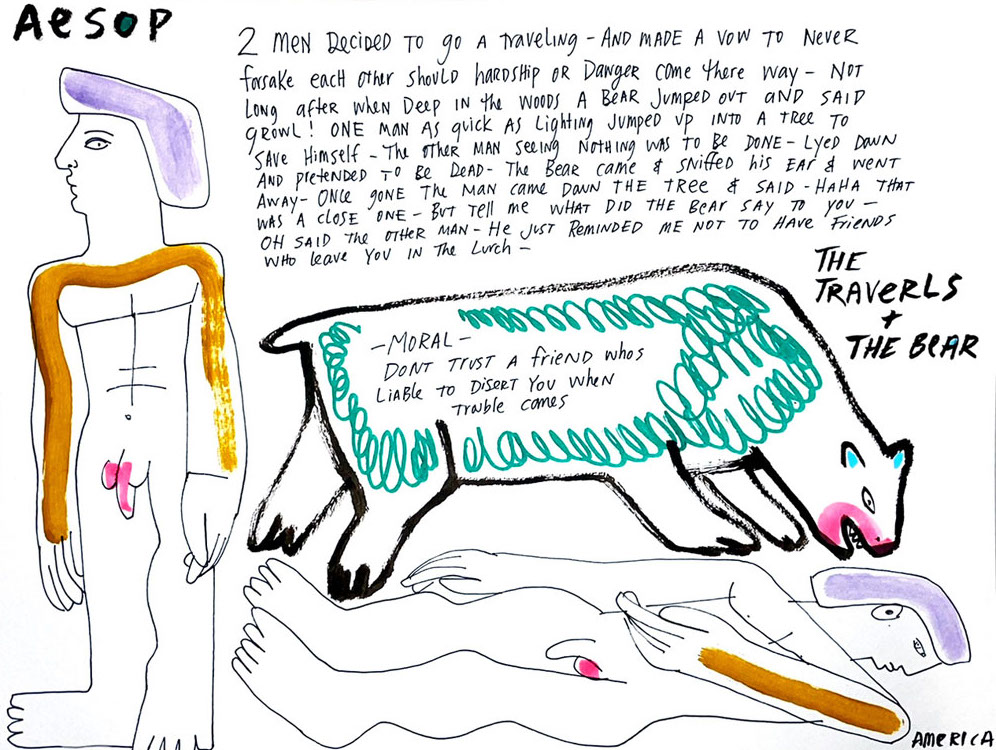 AeSOP
2 MeN DeciDeD TO go A Traveling - AND MADE A VOW TO NeveR
forsake eaCh OTHer Should hardShip OR Danger COMe there way - NOT
LONg after wHeN Deep IN the WOODS A BeAR JUMPeD OUT aND SAID
gROWL! ONE MAN As quick AS Lighting JUMPed UP INTO A TReE TO
SAVe HimSelf - The OTHER MAN SEEing NOTHINg WAS TO Be DONE - LyeD DawN
AND pReTeNDeD TO Be DeAD - The BeaR CaMe & SNiffeD his EAR & WeNT
AWAy - ONCe gONE The MAN came DawN THE TRee & SAID - HaHa THAT
WAS A CLOSE ONE - BUT TeLL me WHAT DiD THE BeaR SAY TO yOU -
OH SAID THe OTHeR MAN - He JUST ReMiNDeD ME NOT TO HAVE FRieNDS
WHO Leave YOU IN THe LURCh -
THE
TRAVeRLS
+
THE BeAR
- MORAL -
DONT TRUST A fRieND WHOS
LiABLe TO DISeRT YOU WHeN
TRWBLe COMeS
AMeRICA